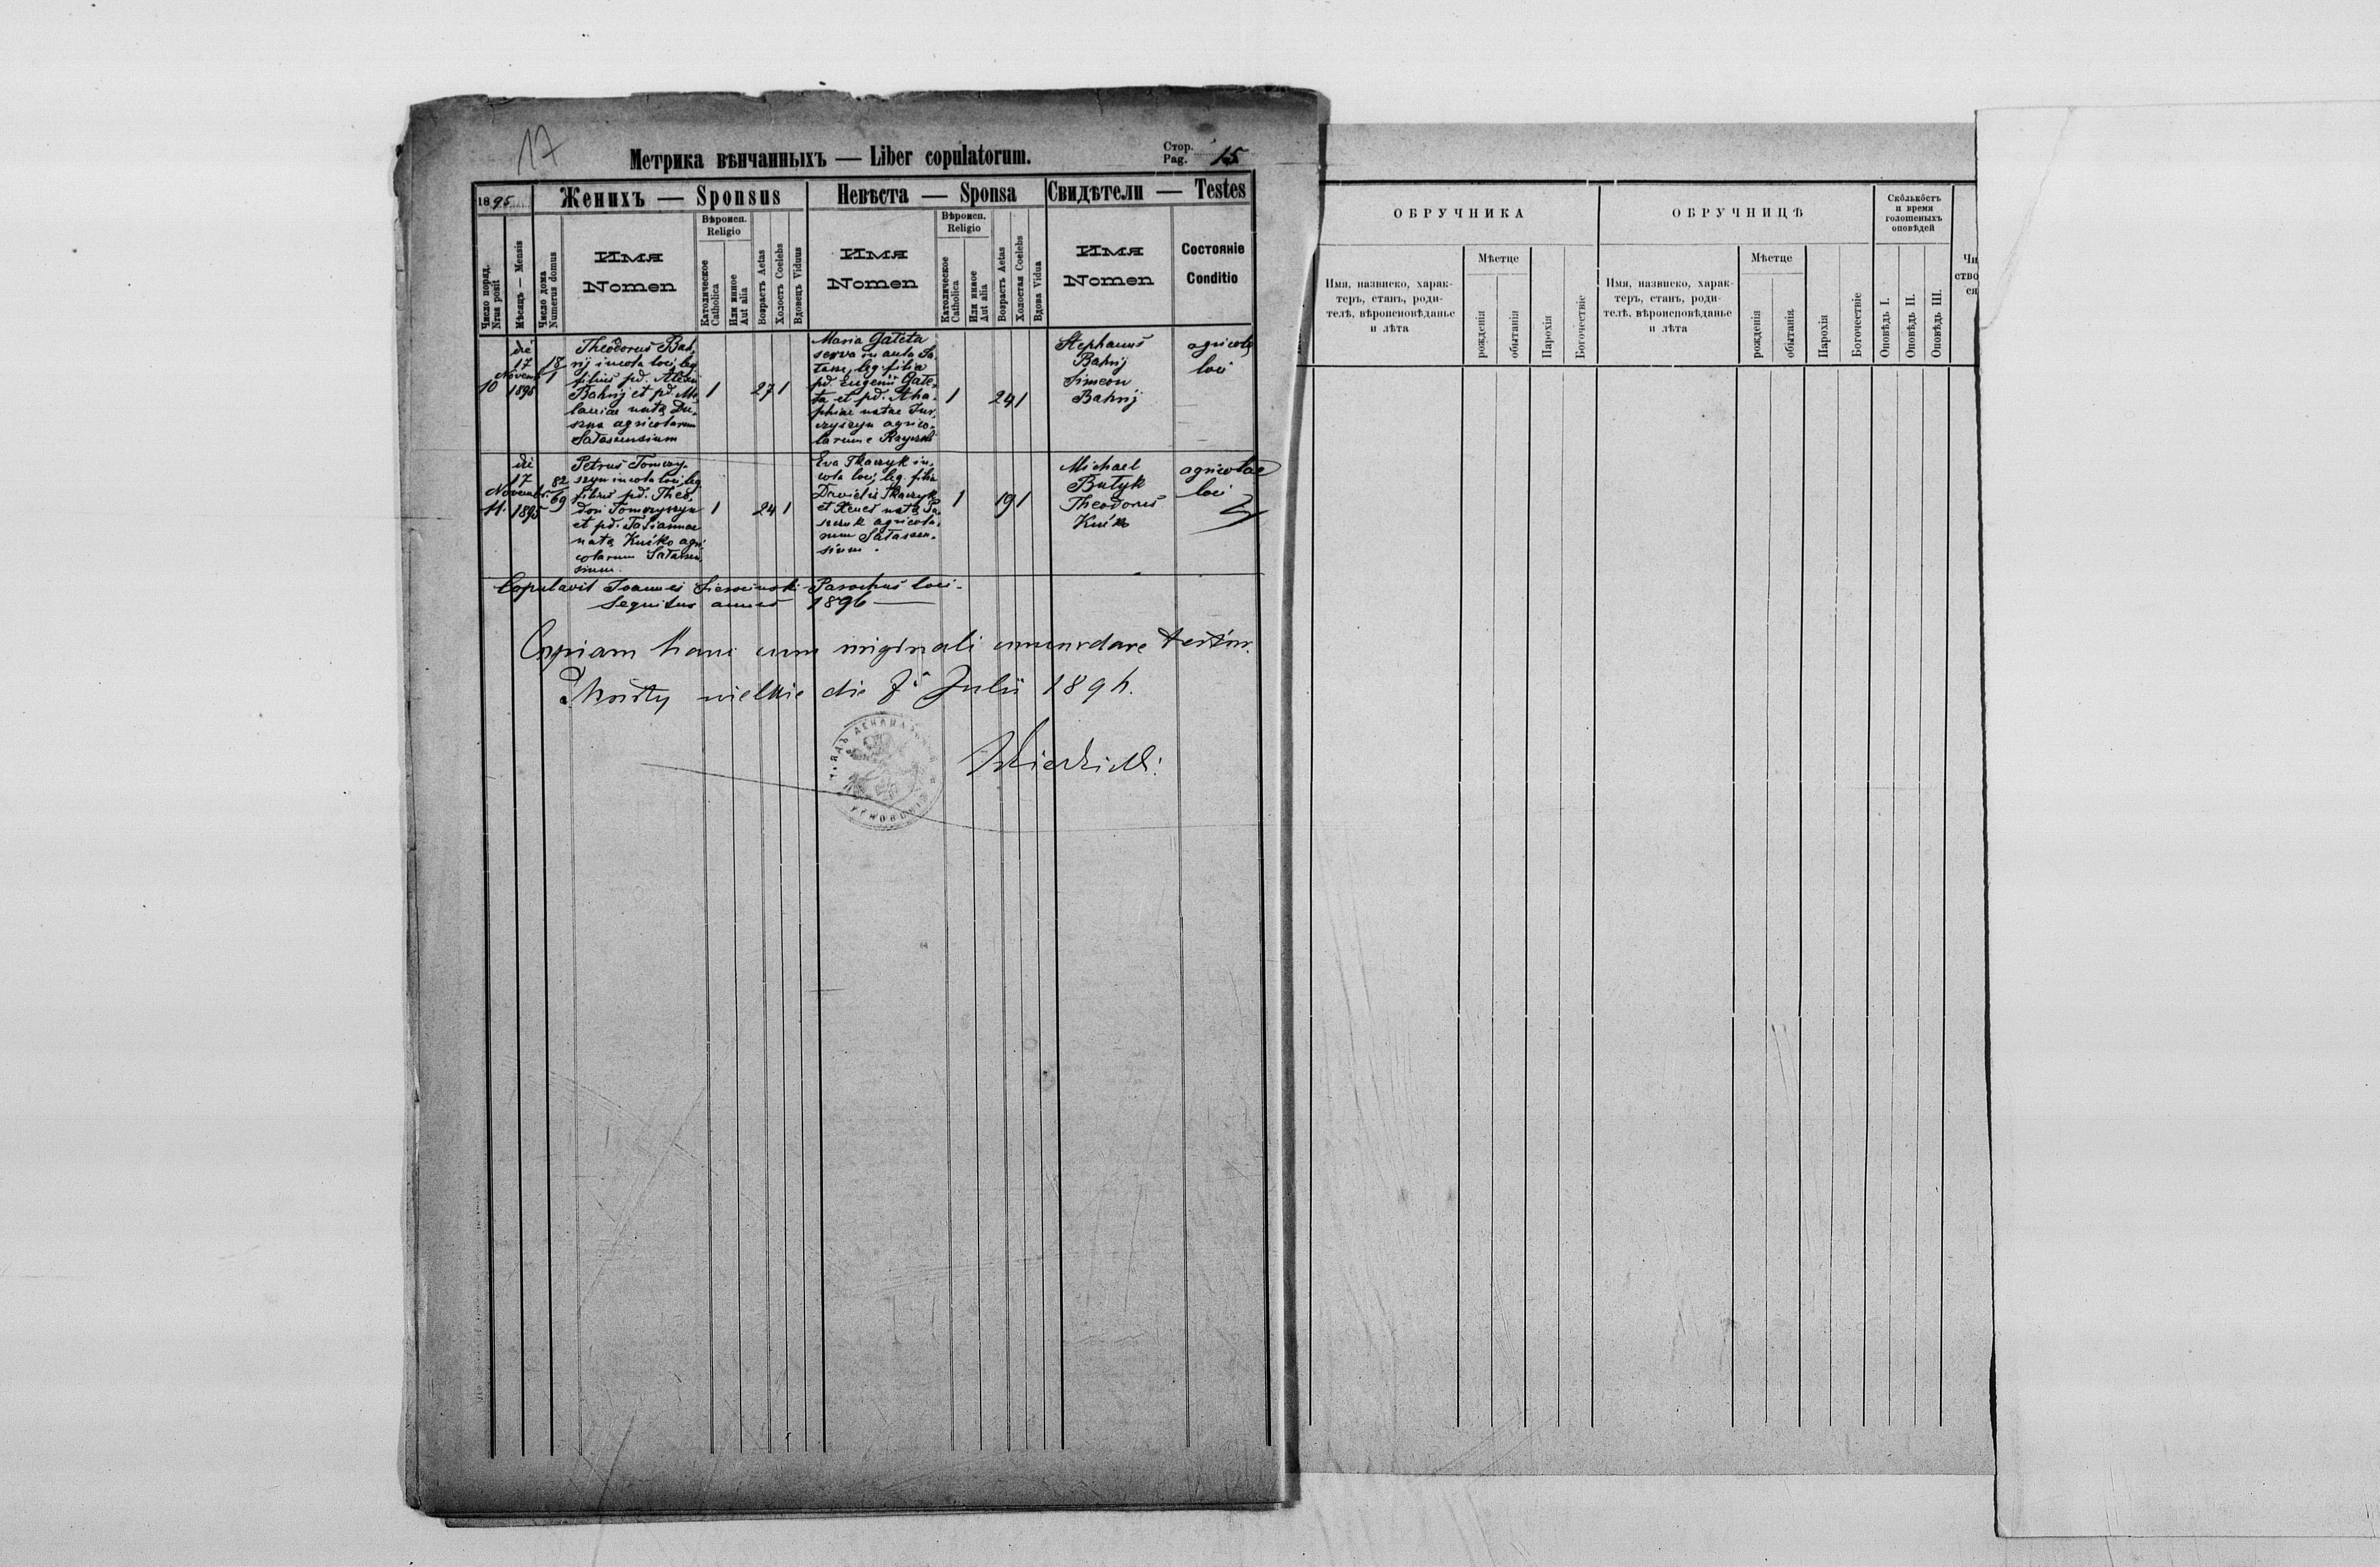 17
Метрика вѣнчанныхъ — Liber copulatorum.
Стор.
Pag. 15
1895
Женихъ — Sponsus
Невѣста — Sponsa
Свидѣтели — Testes
Число поряд.
Nrus posit
Мѣсяцъ — Mensis
Число дома
Numerus domus
Имя
Nomen
Вѣроисп.
Religio
Католическое
Catholica
Или инное
Aut alia
Возрастъ Aetas
Холостъ Coelebs
Вдовецъ Viduus
Имя
Nomen
Вѣроисп.
Religio
Католическое
Catholica
Или инное
Aut alia
Возрастъ Aetas
Холостая Coelebs
Вдова Vidua
Имя
Nomen
Состояніе
Conditio
10
die
17
Novemb
1895
18
1
Theodorus Bah
rij incola loci, leg
filius pd. Alexii
Bahrij et pd. Me
laniae nata Du
agricolarum
Satassensium
1
27
1
Maria Gateta
serva in aula Sa
tasse, leg. filia
pd. Eugenii Gate
ta et pd. Aha
phiae natae Jur
czyszyn agrico
larum e
1
24
1
Stephanus
Bahrij
Simeon
Bahrij
agricolae
loci
11.
die
17
Novembr.
1895
82
69
Petrus Tomczy
szyn incola loci, leg
filius pd. Theo
dori Tomczyszyn
et pd. Tatiannae
nata Kuśko agri
colarum Satassen
sium.
1
24
1
Eva Tkaczyk in
cola loci, leg. filia
Danielis Tkaczyk
et Xeniae nata
agricola
rum Satassen
sium.
1
19
1
Michael
Butyk
Theodorus
Kuśko
agricolae
loci
Copulavit Joannes Parochus loci.
Sequitur annus 1896
Copiam hanc cum originali concordare testor.
Mosty wielkie die 7. Julii 1896.
ОБРУЧНИКА
ОБРУЧНИЦѢ
Ско̂лько̂сть
и время
голошеныхъ
оповѣдей
Имя, назвиско, харак-
теръ, станъ, роди-
телѣ, вѣроисповѣданье
и лѣта
Мѣстце
рожденія
обытанія
Парохія
Богочестіе
Имя, назвиско, харак-
теръ, станъ, роди-
телѣ, вѣроисповѣданье
и лѣта
Мѣстце
рожденія
обытанія
Парохія
Богочестіе
Оповѣдь I.
Оповѣдь II.
Оповѣдь III.
Чи
ство
ся